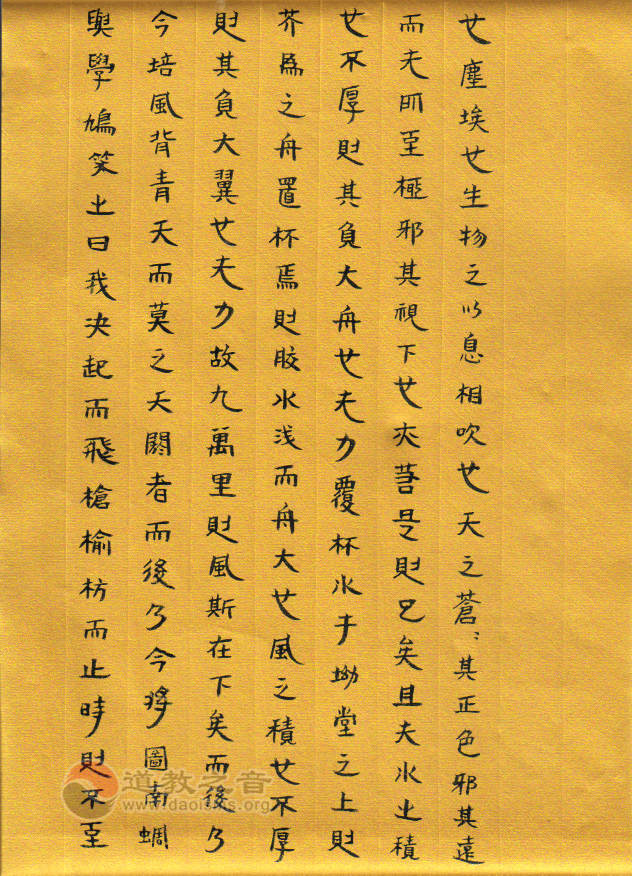 也塵埃也生物之以息相吹也天之蒼〻其正色邪其遠
而无所至極邪其視下也亦若是則已矣且夫水之積
也不厚則其負大舟也无力覆杯水于坳堂之上則
芥為之舟置杯焉則膠水浅而舟大也風之積也不厚
則其負大翼也无力故九萬里則風斯在下矣而後乃
今培風背青天而莫之夭閼者而後乃今將圖南蜩
與學鳩笑之曰我决起而飛槍榆枋而止時則不至
道教之音
www.daoisms.org